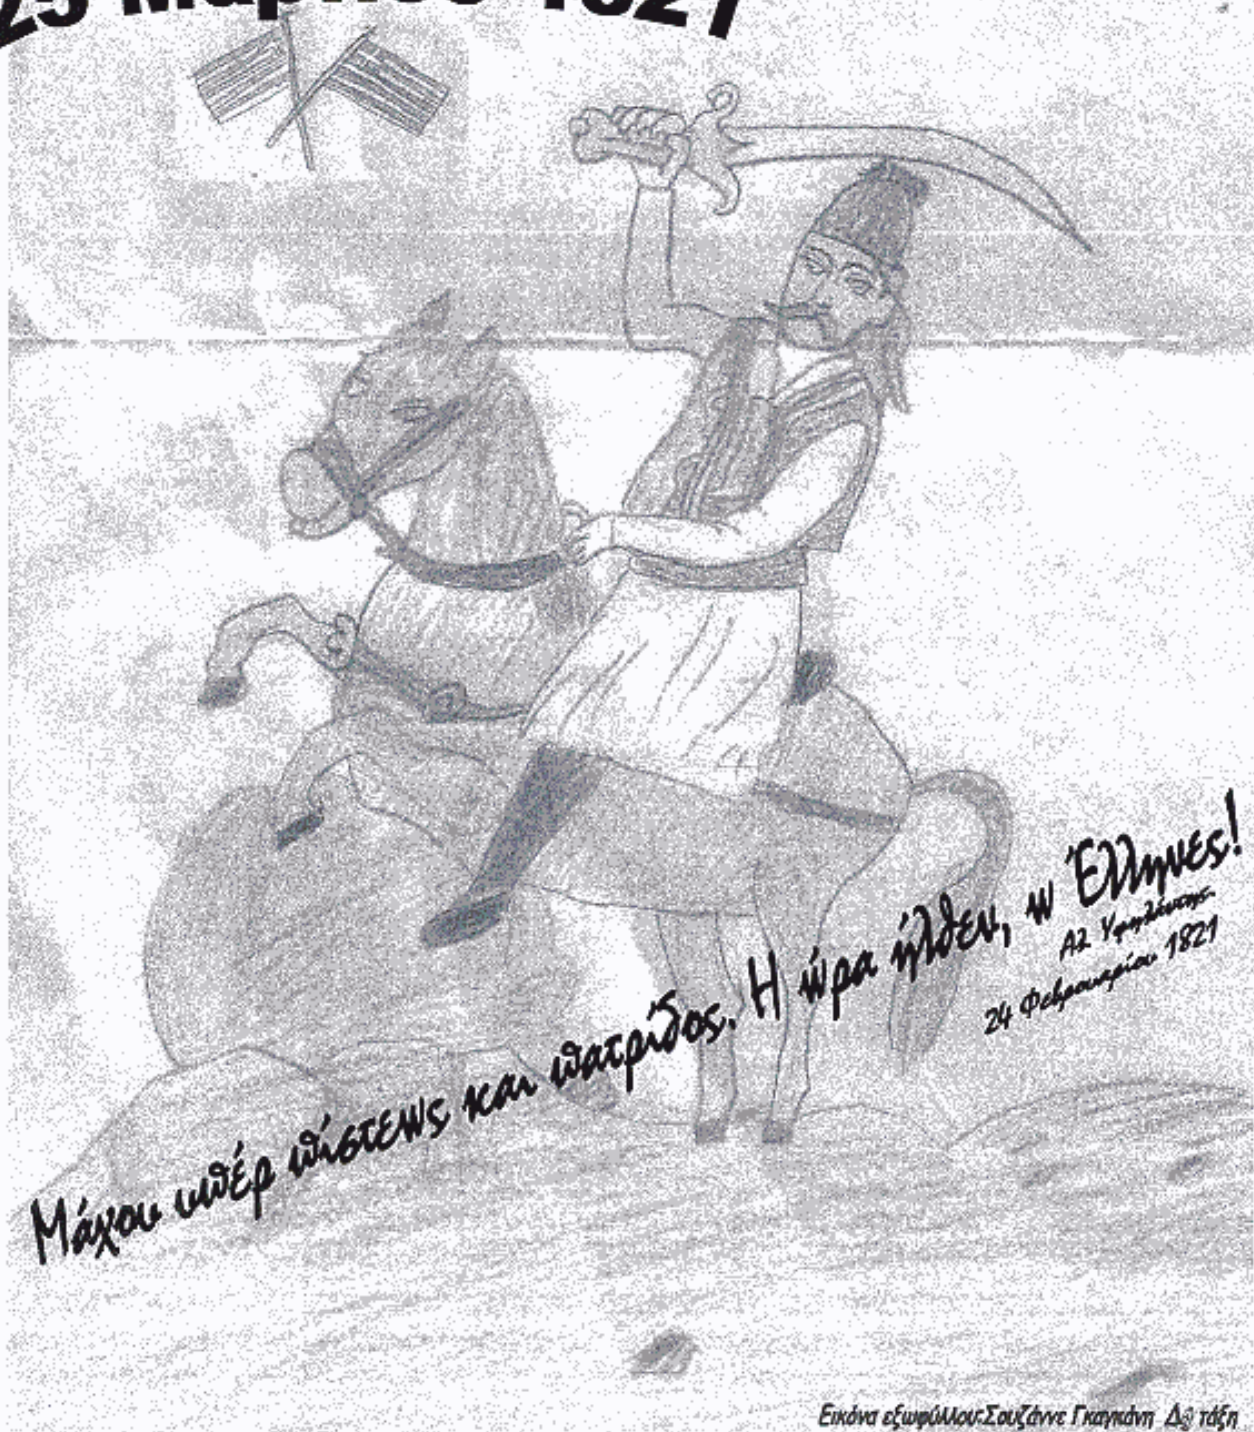 25 Μαρτίου 1821
Μάχου υπέρ πίστεως και πατρίδος. Η ώρα ήλθεν, ω Έλληνες!
Αλ Υψηλάντης
24 Φεβρουαρίου 1821
Εικόνα εξωφύλλου:Σουζάννε Γκαγκάνη Δ@ τάξη